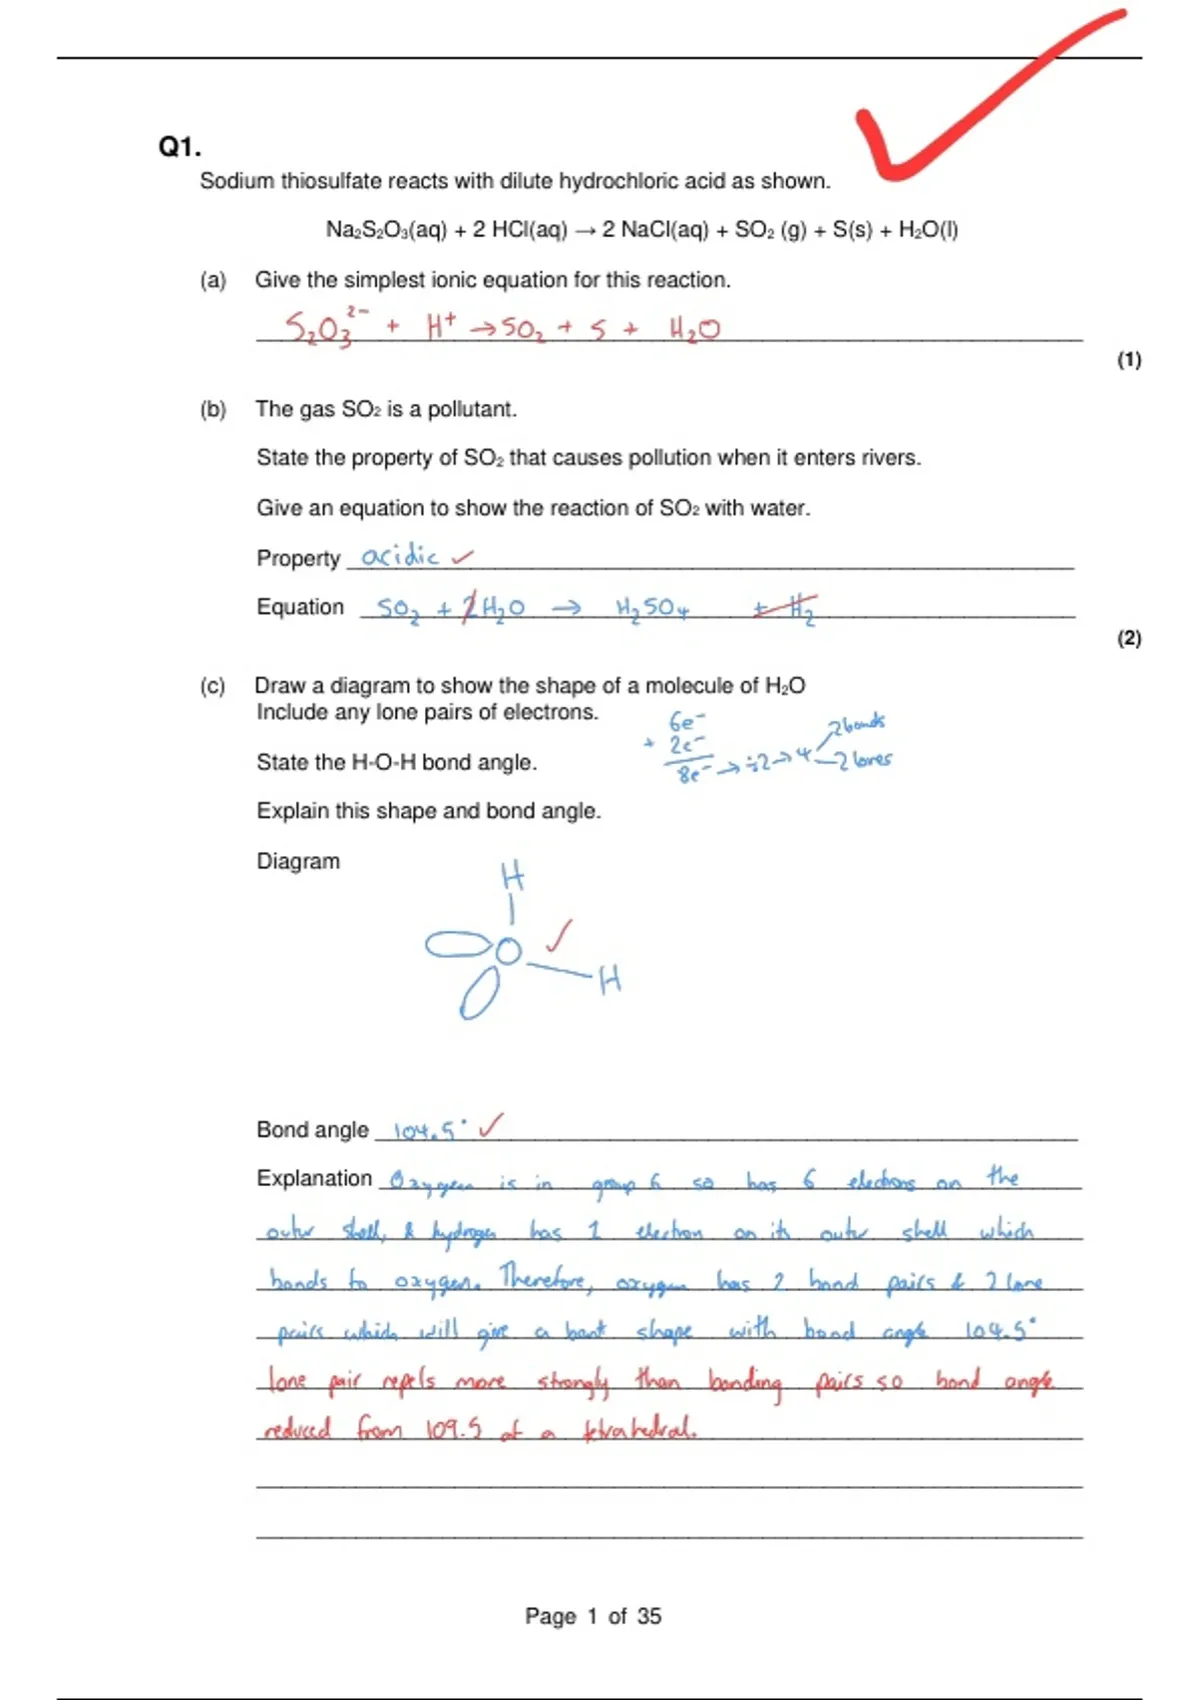 Q1.
Sodium thiosulfate reacts with dilute hydrochloric acid as shown.
Na₂S₂O₃(aq) + 2 HCl(aq) → 2 NaCl(aq) + SO₂ (g) + S(s) + H₂O(l)
(a) Give the simplest ionic equation for this reaction.
S₂O₃²⁻ + H⁺ → SO₂ + S + H₂O
(1)
(b) The gas SO₂ is a pollutant.
State the property of SO₂ that causes pollution when it enters rivers.
Give an equation to show the reaction of SO₂ with water.
Property acidic ✓
Equation SO₂ + 2H₂O → H₂SO₄ + H₂
(2)
(c) Draw a diagram to show the shape of a molecule of H₂O
Include any lone pairs of electrons.
6e⁻
+ 2e⁻
8e⁻ → ÷2 → 4
2 bonds
2 lones
State the H-O-H bond angle.
Explain this shape and bond angle.
Diagram
H
O ✓
H
Bond angle 104.5° ✓
Explanation Oxygen is in group 6 so has 6 electrons on the
outer shell, & hydrogen has 1 electron on its outer shell which
bonds to oxygen. Therefore, oxygen has 2 bond pairs & 2 lone
pairs which will give a bent shape with bond angle 104.5°
lone pair repels more strongly than bonding pairs so bond angle
reduced from 109.5 of a tetrahedral.
Page 1 of 35